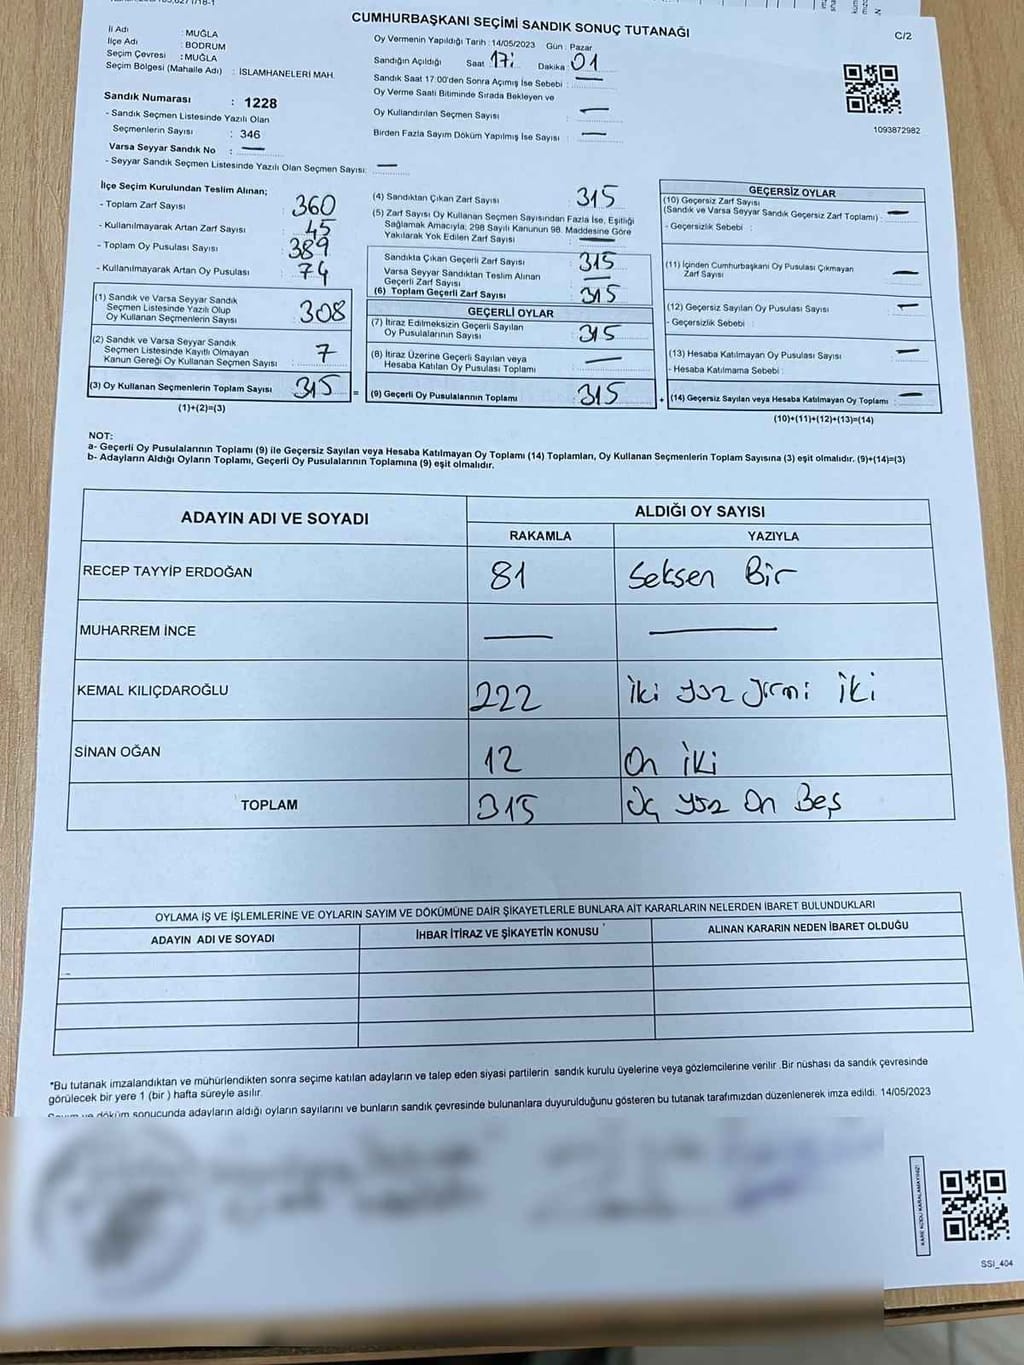 CUMHURBAŞKANI SEÇİMİ SANDIK SONUÇ TUTANAĞI
C/2
İl Adı : MUĞLA
İlçe Adı : BODRUM
Seçim Çevresi : MUĞLA
Seçim Bölgesi (Mahalle Adı) : İSLAMHANELERİ MAH.
Sandık Numarası : 1228
- Sandık Seçmen Listesinde Yazılı Olan
Seçmenlerin Sayısı : 346
Varsa Seyyar Sandık No : —
- Seyyar Sandık Seçmen Listesinde Yazılı Olan Seçmen Sayısı: —
Oy Vermenin Yapıldığı Tarih : 14/05/2023 Gün : Pazar
Sandığın Açıldığı Saat 17: Dakika : 01
Sandık Saat 17:00'den Sonra Açımış İse Sebebi : —
Oy Verme Saati Bitiminde Sırada Bekleyen ve
Oy Kullandırılan Seçmen Sayısı : —
Birden Fazla Sayım Döküm Yapılmış İse Sayısı : —
1093872982
İlçe Seçim Kurulundan Teslim Alınan;
- Toplam Zarf Sayısı : 360
- Kullanılmayarak Artan Zarf Sayısı : 45
- Toplam Oy Pusulası Sayısı : 389
- Kullanılmayarak Artan Oy Pusulası : 74
(1) Sandık ve Varsa Seyyar Sandık
Seçmen Listesinde Yazılı Olup
Oy Kullanan Seçmenlerin Sayısı : 308
(2) Sandık ve Varsa Seyyar Sandık
Seçmen Listesinde Kayıtlı Olmayan
Kanun Gereği Oy Kullanan Seçmen Sayısı : 7
(3) Oy Kullanan Seçmenlerin Toplam Sayısı 315 =
(1)+(2)=(3)
(4) Sandıktan Çıkan Zarf Sayısı : 315
(5) Zarf Sayısı Oy Kullanan Seçmen Sayısından Fazla İse, Eşitliği
Sağlamak Amacıyla, 298 Sayılı Kanunun 98. Maddesine Göre
Yakılarak Yok Edilen Zarf Sayısı : —
Sandıkta Çıkan Geçerli Zarf Sayısı : 315
Varsa Seyyar Sandıktan Teslim Alınan
Geçerli Zarf Sayısı : —
(6) Toplam Geçerli Zarf Sayısı : 315
GEÇERLİ OYLAR
(7) İtiraz Edilmeksizin Geçerli Sayılan
Oy Pusulalarının Sayısı : 315
(8) İtiraz Üzerine Geçerli Sayılan veya
Hesaba Katılan Oy Pusulası Toplamı : —
(9) Geçerli Oy Pusulalarının Toplamı : 315 +
GEÇERSİZ OYLAR
(10) Geçersiz Zarf Sayısı
(Sandık ve Varsa Seyyar Sandık Geçersiz Zarf Toplamı) : —
- Geçersizlik Sebebi :
(11) İçinden Cumhurbaşkanı Oy Pusulası Çıkmayan
Zarf Sayısı : —
(12) Geçersiz Sayılan Oy Pusulası Sayısı : —
- Geçersizlik Sebebi :
(13) Hesaba Katılmayan Oy Pusulası Sayısı : —
- Hesaba Katılmama Sebebi :
(14) Geçersiz Sayılan veya Hesaba Katılmayan Oy Toplamı : —
(10)+(11)+(12)+(13)=(14)
NOT:
a- Geçerli Oy Pusulalarının Toplamı (9) ile Geçersiz Sayılan veya Hesaba Katılmayan Oy Toplamı (14) Toplamları, Oy Kullanan Seçmenlerin Toplam Sayısına (3) eşit olmalıdır. (9)+(14)=(3)
b- Adayların Aldığı Oyların Toplamı, Geçerli Oy Pusulalarının Toplamına (9) eşit olmalıdır.
ADAYIN ADI VE SOYADI ALDIĞI OY SAYISI
RAKAMLA YAZIYLA
RECEP TAYYİP ERDOĞAN 81 Seksen Bir
MUHARREM İNCE — —
KEMAL KILIÇDAROĞLU 222 İki yüz yirmi iki
SİNAN OĞAN 12 On iki
TOPLAM 315 Üç yüz On Beş
OYLAMA İŞ VE İŞLEMLERİNE VE OYLARIN SAYIM VE DÖKÜMÜNE DAİR ŞİKAYETLERLE BUNLARA AİT KARARLARIN NELERDEN İBARET BULUNDUKLARI
ADAYIN ADI VE SOYADI İHBAR İTİRAZ VE ŞİKAYETİN KONUSU ALINAN KARARIN NEDEN İBARET OLDUĞU
*Bu tutanak imzalandıktan ve mühürlendikten sonra seçime katılan adayların ve talep eden siyasi partilerin sandık kurulu üyelerine veya gözlemcilerine verilir .Bir nüshası da sandık çevresinde
görülecek bir yere 1 (bir ) hafta süreyle asılır.
Sayım ve döküm sonucunda adayların aldığı oyların sayılarını ve bunların sandık çevresinde bulunanlara duyurulduğunu gösteren bu tutanak tarafımızdan düzenlenerek imza edildi. 14/05/2023
SSI_404